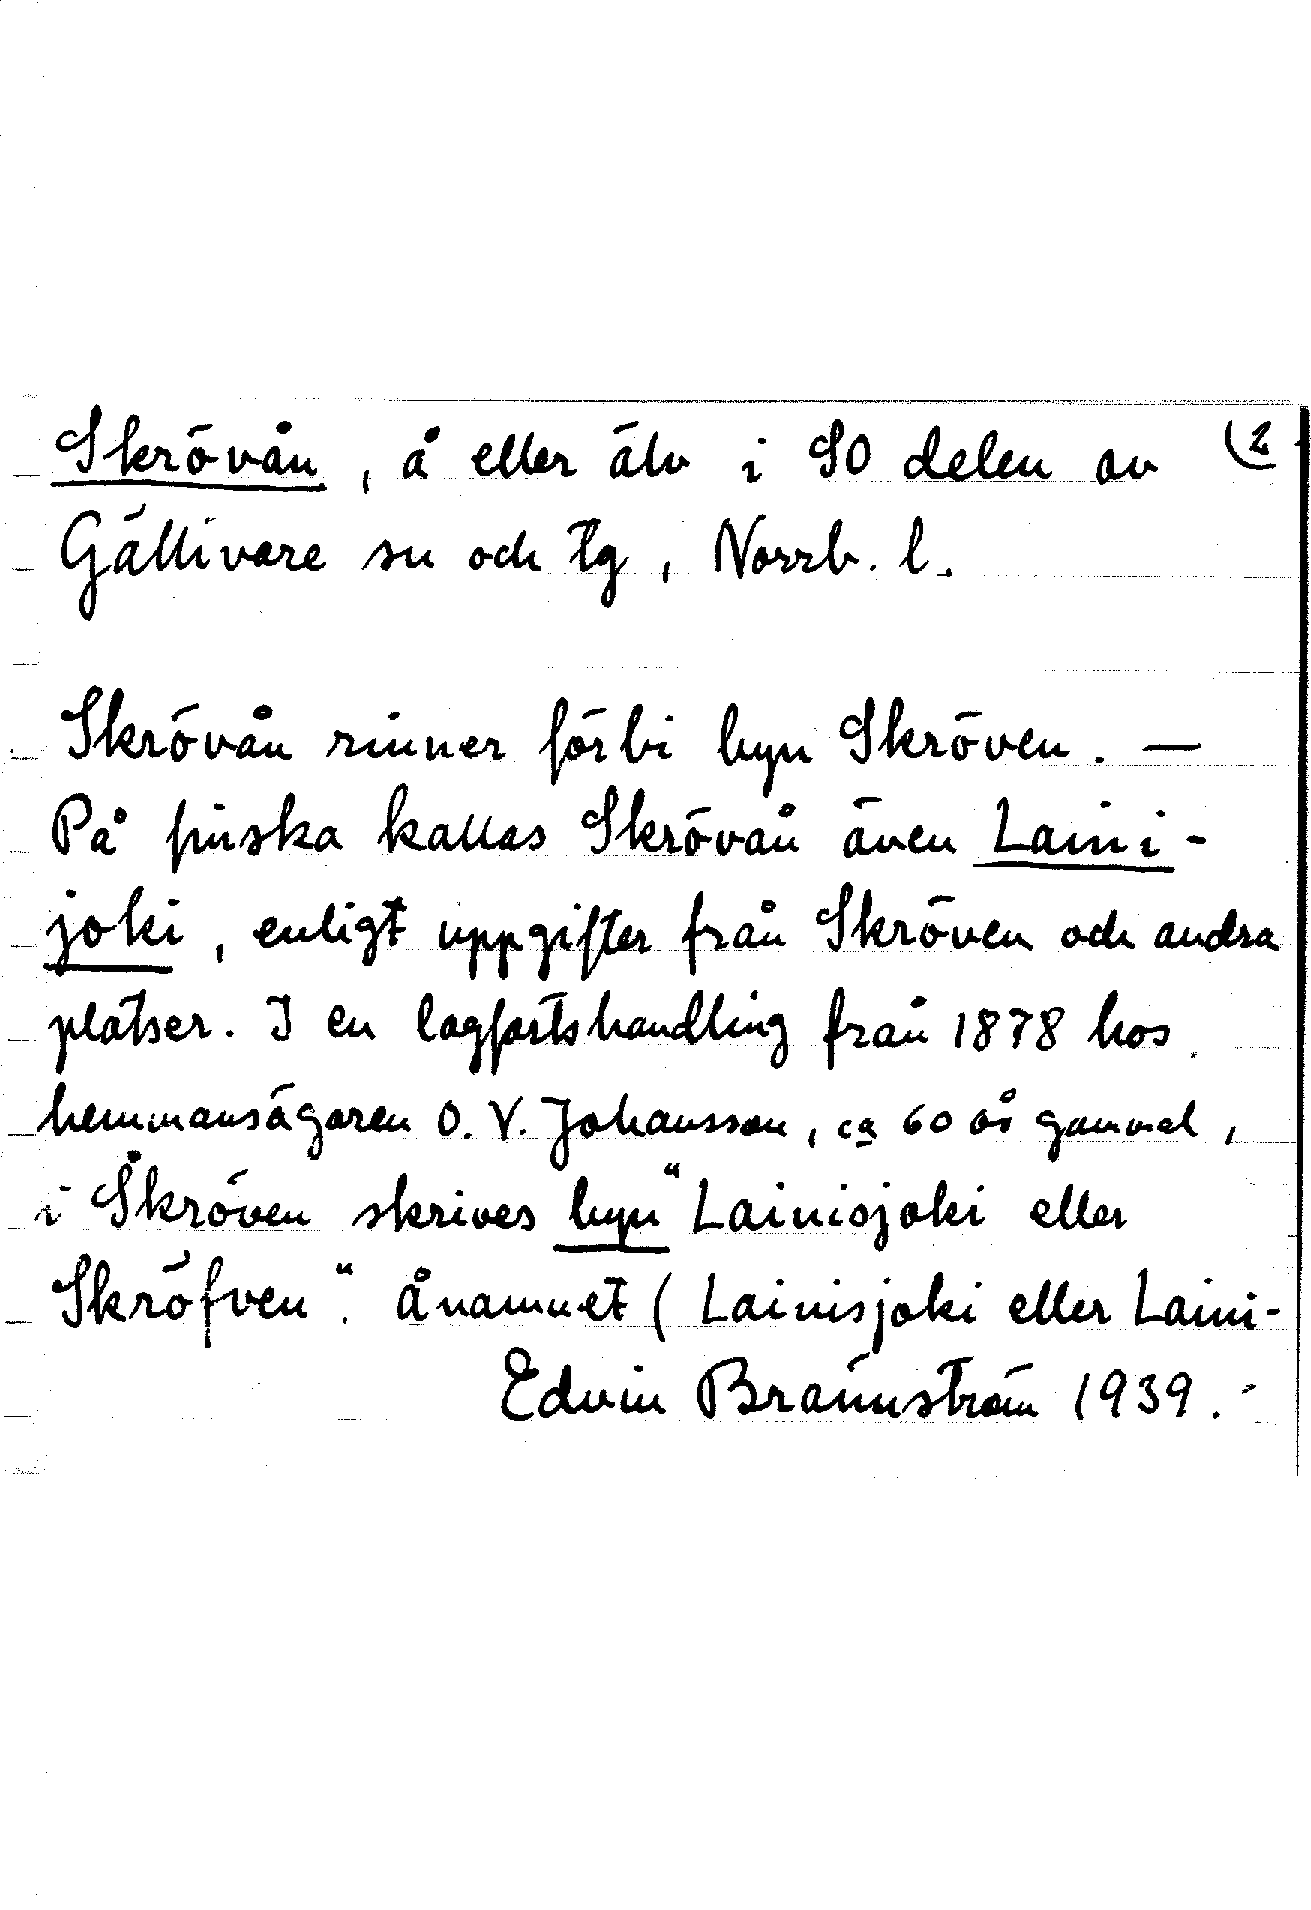 Skrövån, å eller älv i SO delen av (2
Gällivare sn och tg, Norrb. l.
Skrövån rinner förbi byn Skröven. —
På finska kallas Skrövån även Laini-
joki, enligt uppgifter från Skröven och andra
platser. I en lagfartshandling från 1878 hos
hemmansägaren O. V. Johansson, ca 60 år gammal,
i Skröven skrives byn "Lainisjoki eller
Skröfven". Ånamnet (Lainisjoki eller Laini-
Edvin Brännström 1939.